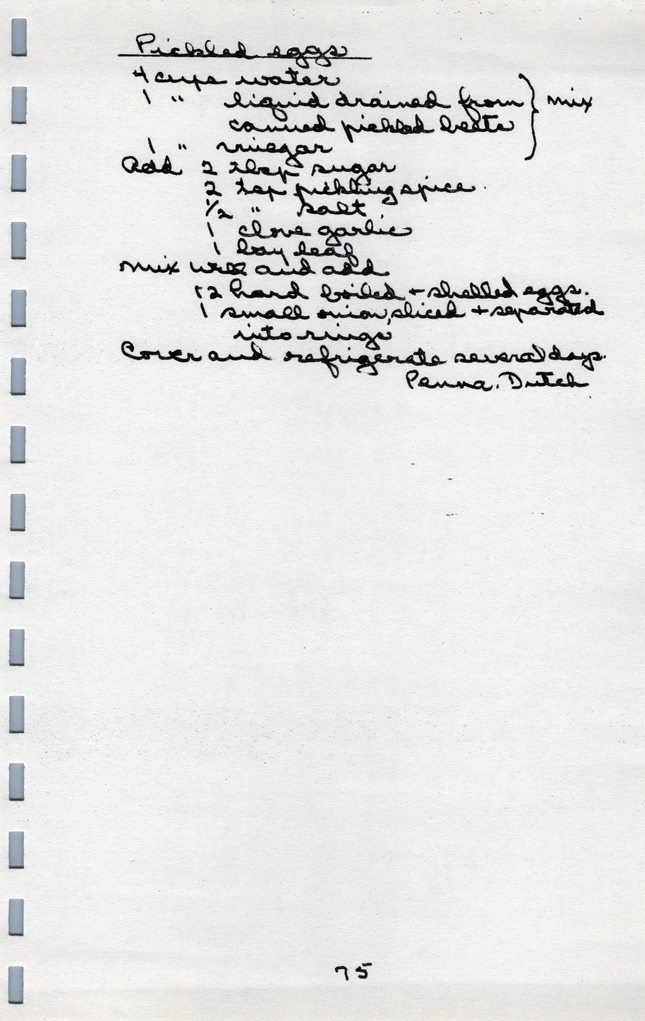 Pickled eggs
4 cups water
1 " liquid drained from } mix
canned pickled beets
1 " vinegar
Add 2 tbsp sugar
2 tsp pickling spice.
1/2 " salt
1 clove garlic
1 bay leaf
mix well and add
12 hard boiled + shelled eggs.
1 small onion, sliced + separated
into rings
Cover and refrigerate several days.
Penna. Dutch
75